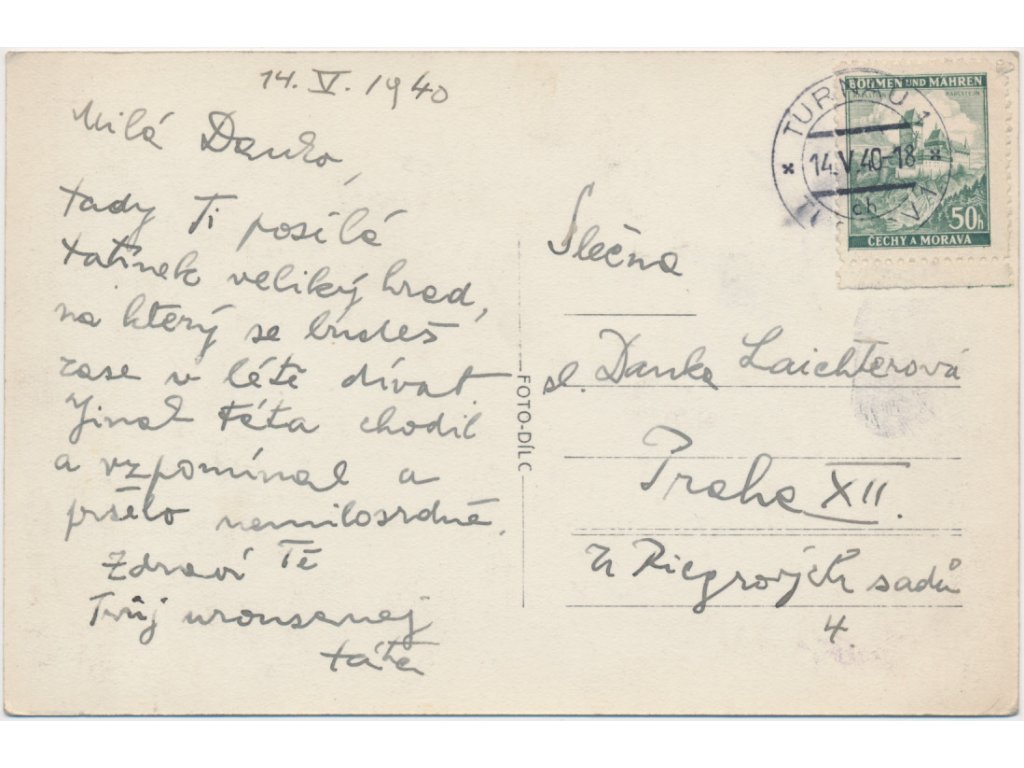 14. V. 1940
Milá Danko,
tady Ti posílá
tatínek veliký hrad,
na který se budeš
zase v létě dívat.
Jinak táta chodil
a vzpomínal a
pršelo nemilosrdně.
Zdraví Tě
Tvůj urousanej
táta
FOTO-DÍLC
TURNAU 1
14.V.40-18
ch
BÖHMEN UND MÄHREN
KARLSTEIN
50h
ČECHY A MORAVA
Slečna
sl. Danka Laichterová
Praha XII.
U Riegrových sadů
4.